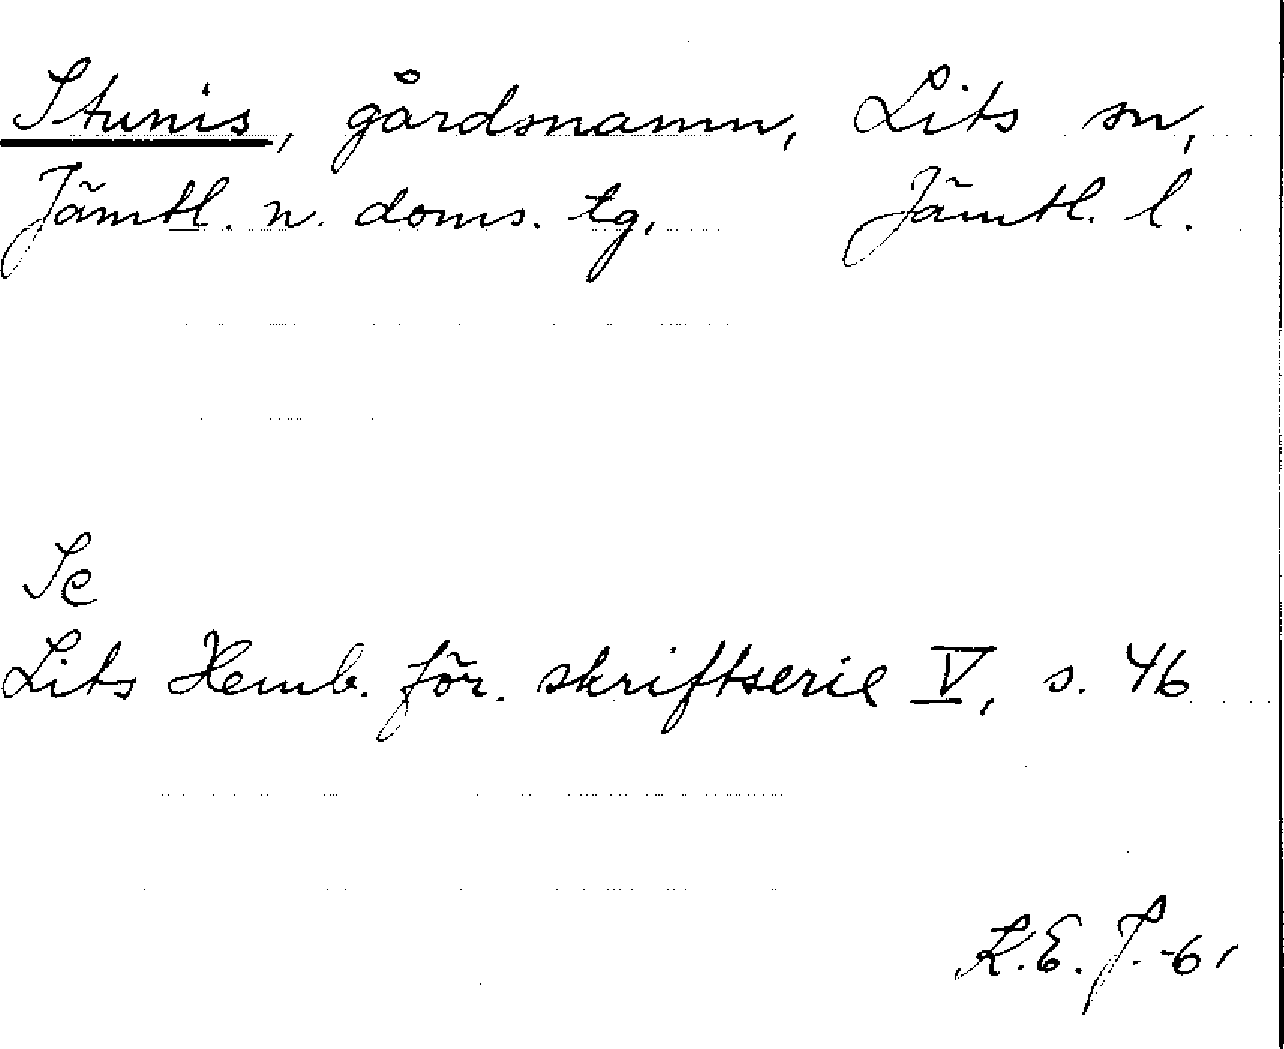 Stunis, gårdsnamn, Lits sn,
Jämtl. n. doms. tg. Jämtl. l.
Se
Lits Hemb. för. skriftserie V, s. 46
K.E.J. -61